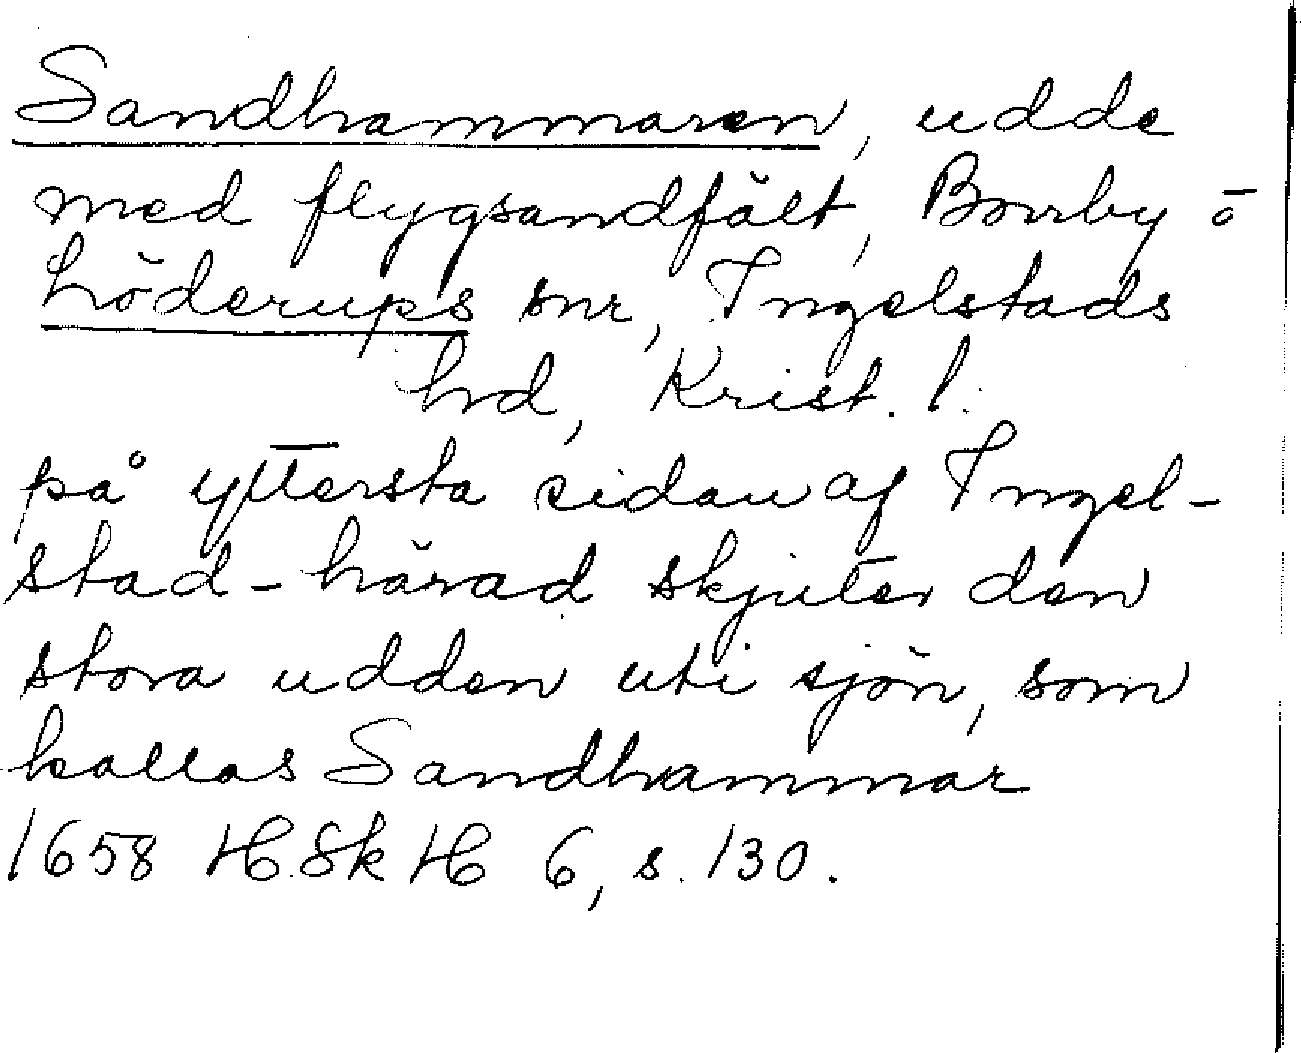 Sandhammaren, udde
med flygsandfält, Borrby o
Löderups snr, Ingelstads
hd, Krist. l.
på yttersta sidan af Ingel-
stad-härad skjuter den
stora udden uti sjön, som
kallas Sandhammar
1658 H. Sk H 6, s. 130.